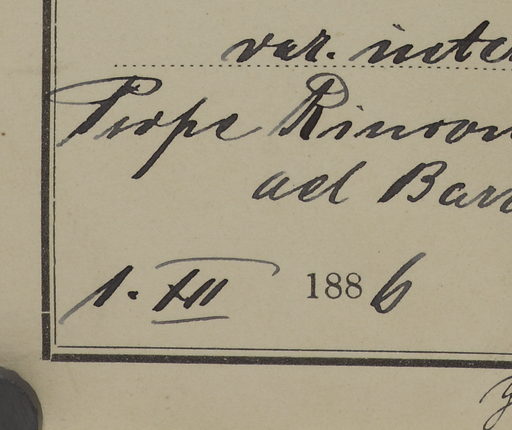 var. inter
Prope Rincon
ad Barr
1. XII 1886